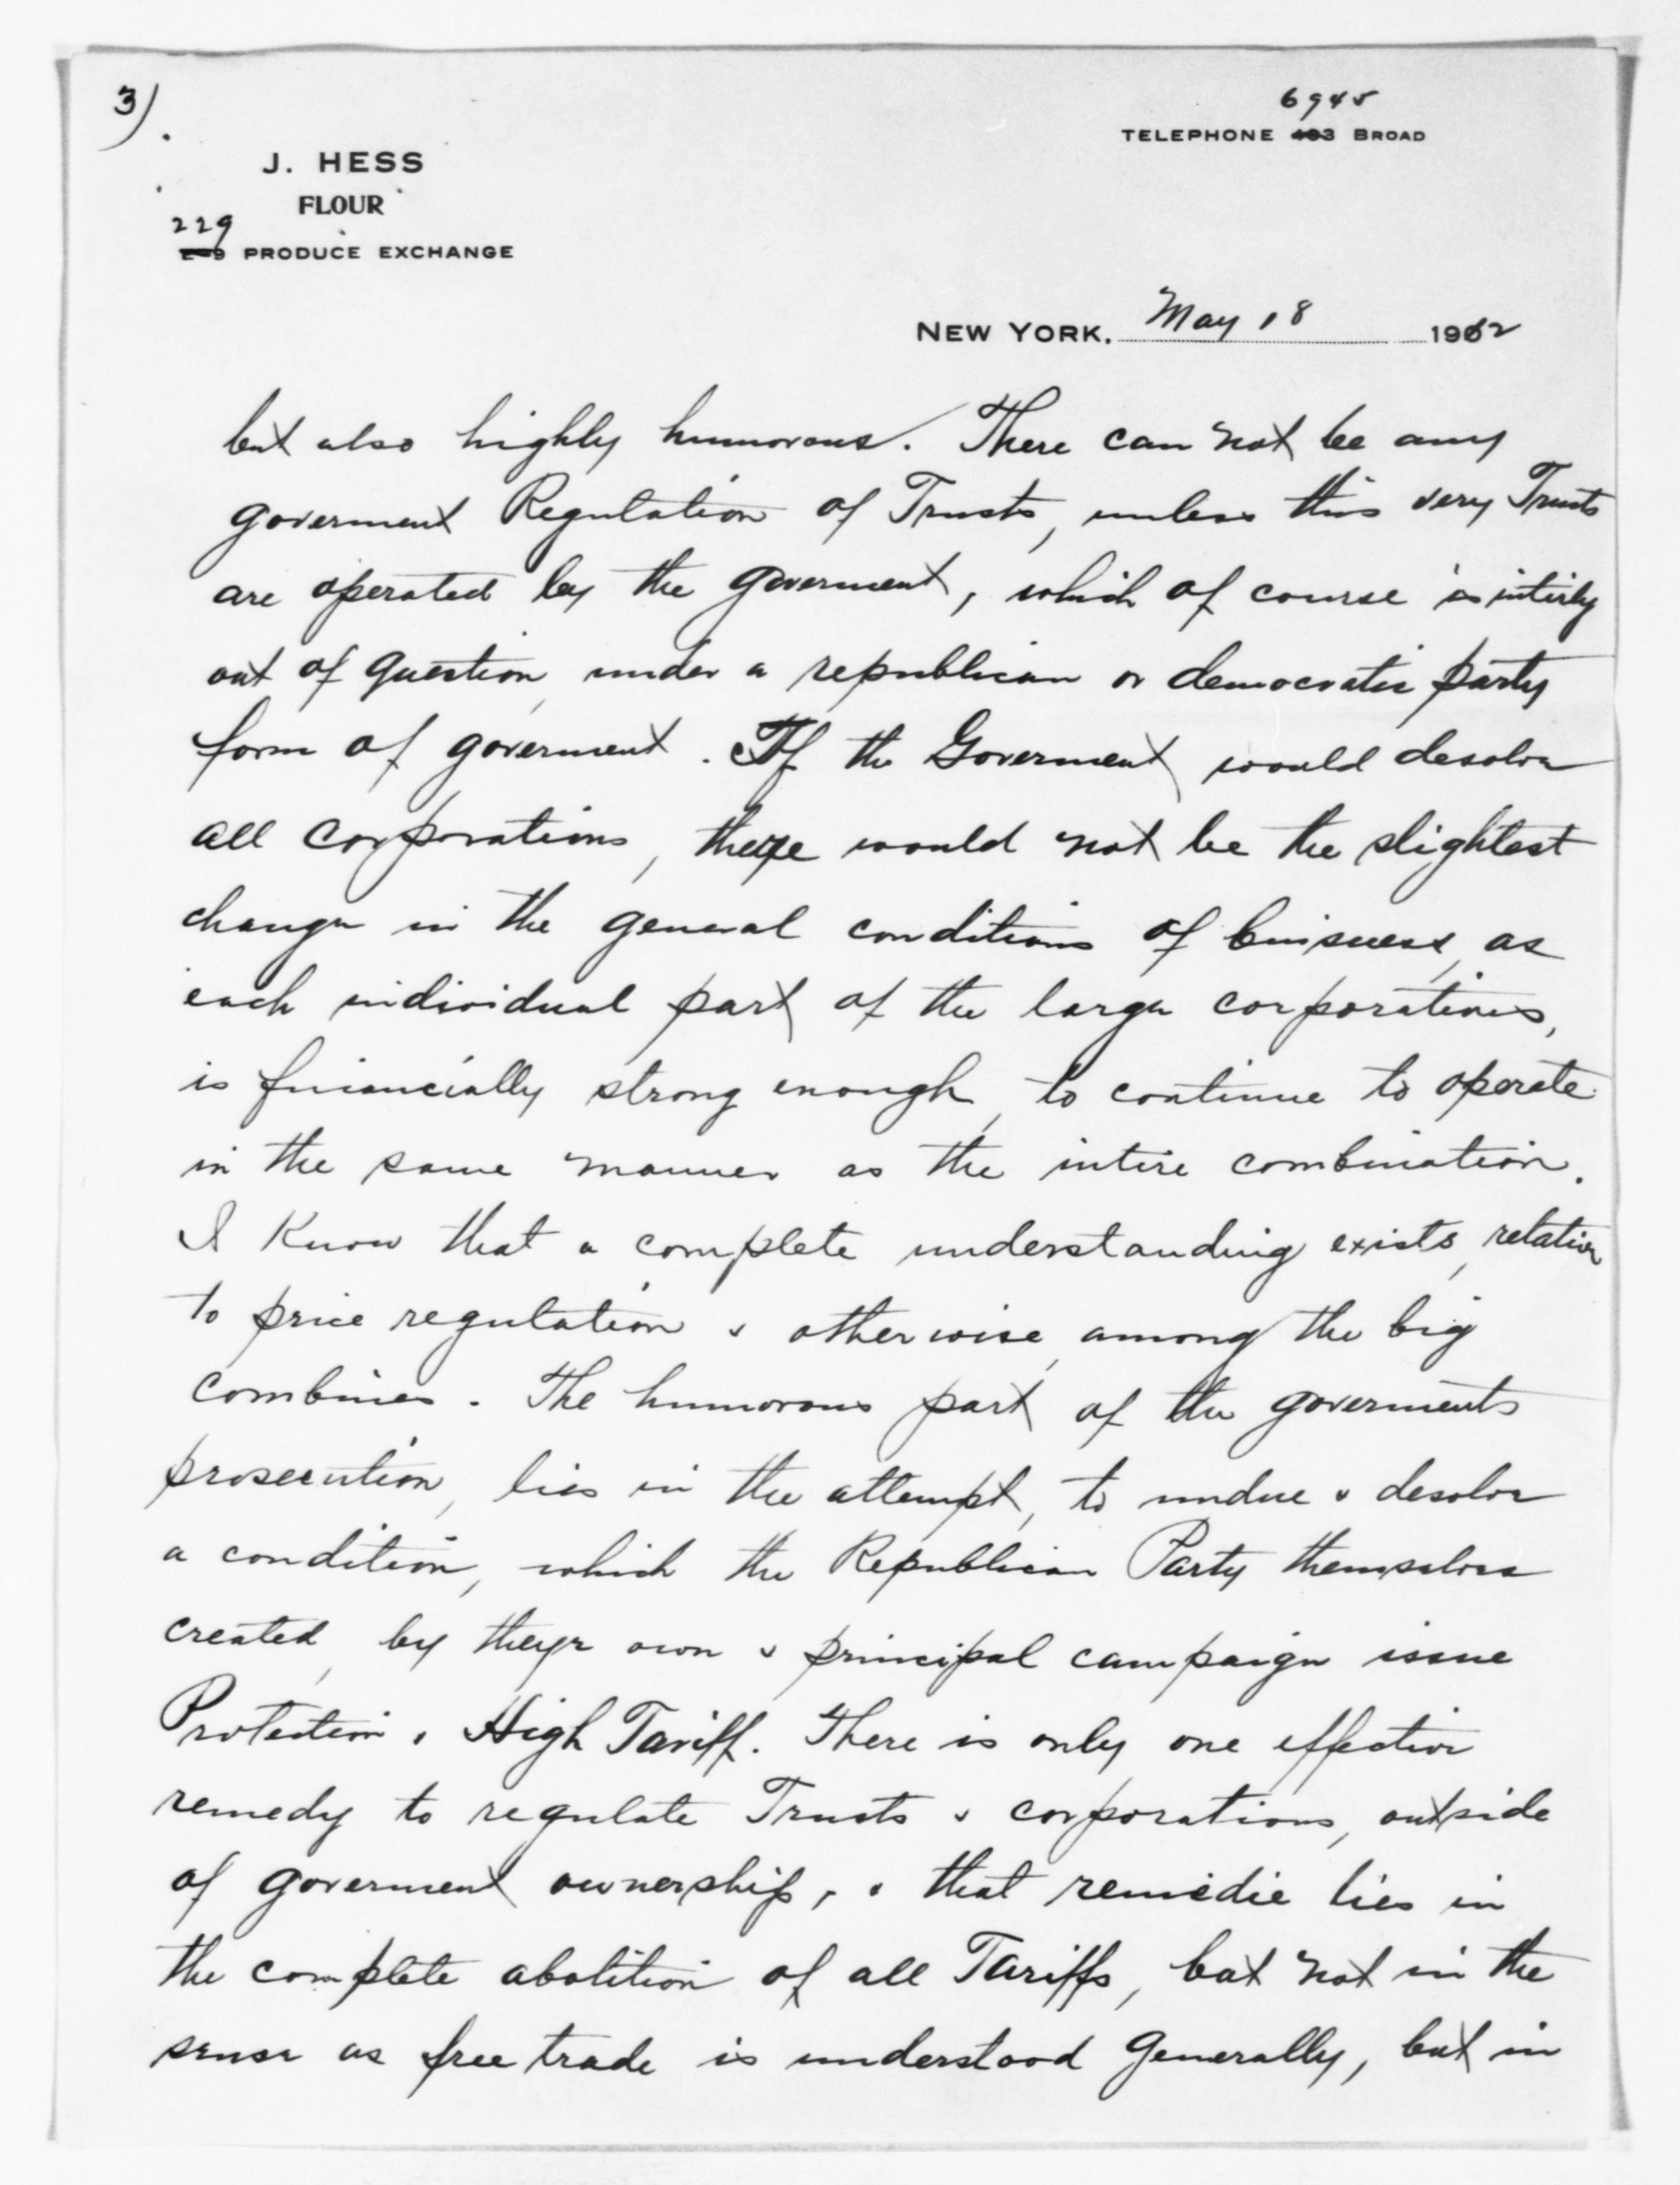 3).
6945
TELEPHONE 403 BROAD
J. HESS
FLOUR
229
PRODUCE EXCHANGE
NEW YORK. May 18 1912
but also highly humorous. There can not be any
goverment Regulation of Trusts, unless this very Trusts
are operated by the goverment, which of course is intirly
out of question, under a republican or democratic party
form of goverment. If the Goverment would desolve
all corporations, there would not be the slightest
change in the general conditions of buisness, as
each individual part of the large corporations,
is financially strong enough, to continue to operate
in the same manner as the intire combination.
I Know that a complete understanding exists, relative
to price regulation & otherwise, among the big
combines. The humorous part of the goverments
prosecution, lies in the attempt, to undue & desolve
a condition, which the Republican Party themselves
created, by theyr own & principal campaign issue
Protection & High Tariff. There is only one effective
remedy to regulate Trusts & corporations, outside
of goverment ownership, & that remedie lies in
the complete abolition of all Tariffs, but not in the
sense as free trade is understood generally, but in